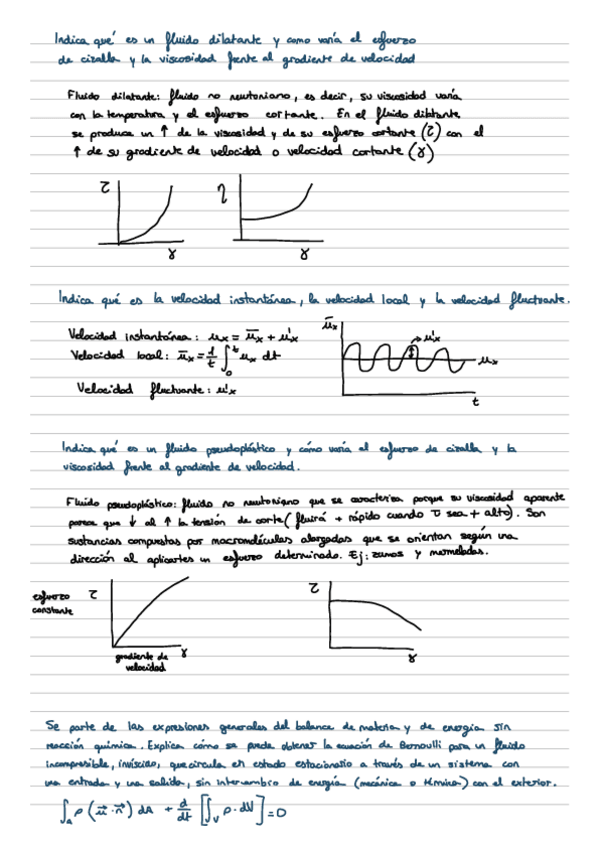 Indica qué es un fluido dilatante y como varía el esfuerzo
de cizalla y la viscosidad frente al gradiente de velocidad
Fluido dilatante: fluido no newtoniano, es decir, su viscosidad varía
con la temperatura y el esfuerzo cortante. En el fluido dilatante
se produce un ↑ de la viscosidad y de su esfuerzo cortante (τ) con el
↑ de su gradiente de velocidad o velocidad cortante (γ)
τ
η
γ
γ
Indica qué es la velocidad instantánea, la velocidad local y la velocidad fluctuante.
Velocidad instantánea: ux = ūx + u'x
Velocidad local: ūx = 1/t ∫₀ᵗ ux dt
Velocidad fluctuante: u'x
ūx
u'x
ux
t
Indica qué es un fluido pseudoplástico y cómo varía el esfuerzo de cizalla y la
viscosidad frente al gradiente de velocidad.
Fluido pseudoplástico: fluido no newtoniano que se caracteriza porque su viscosidad aparente
parece que ↓ al ↑ la tensión de corte (fluirá + rápido cuando τ sea + alto). Son
sustancias compuestas por macromoléculas alargadas que se orientan según una
dirección al aplicarles un esfuerzo determinado. Ej: zumos y mermeladas.
esfuerzo
constante
τ
gradiente de
velocidad
γ
τ
γ
Se parte de las expresiones generales del balance de materia y de energía sin
reacción química. Explica cómo se puede obtener la ecuación de Bernoulli para un fluido
incompresible, invíscido, que circula en estado estacionario a través de un sistema con
una entrada y una salida, sin intercambio de energía (mecánica o térmica) con el exterior.
∫A ρ (u⃗·n⃗) dA + d/dt [∫V ρ·dV] = 0